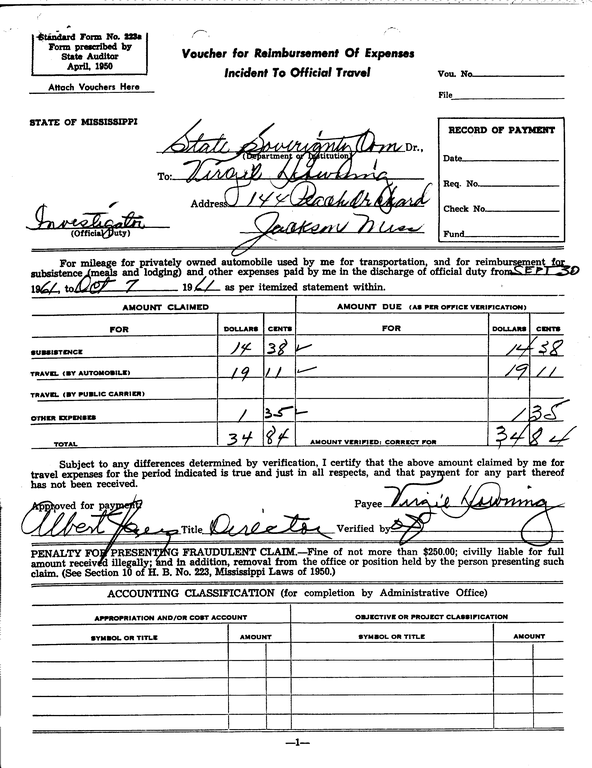 Standard Form No. 223a
Form prescribed by
State Auditor
April, 1950
Attach Vouchers Here
Voucher for Reimbursement Of Expenses
Incident To Official Travel
Vou. No.
File
STATE OF MISSISSIPPI
RECORD OF PAYMENT
Date
Req. No.
Check No.
Fund
State Soverignty Com Dr.,
(Department or Institution)
To: Virgil Downing
Address 144 Peach Orchard
Jackson Miss
Investigator
(Official Duty)
For mileage for privately owned automobile used by me for transportation, and for reimbursement for
subsistence (meals and lodging) and other expenses paid by me in the discharge of official duty from SEPT 30
1961, to Oct 7 1961 as per itemized statement within.
AMOUNT CLAIMED AMOUNT DUE (AS PER OFFICE VERIFICATION)
FOR DOLLARS CENTS FOR DOLLARS CENTS
SUBSISTENCE 14 38 14 38
TRAVEL (BY AUTOMOBILE) 19 11 19 11
TRAVEL (BY PUBLIC CARRIER)
OTHER EXPENSES 1 35 1 35
TOTAL 34 84 AMOUNT VERIFIED; CORRECT FOR 34 84
Subject to any differences determined by verification, I certify that the above amount claimed by me for
travel expenses for the period indicated is true and just in all respects, and that payment for any part thereof
has not been received.
Approved for payment Payee Virgil Downing
Albert Jones Title Director Verified by
PENALTY FOR PRESENTING FRAUDULENT CLAIM.—Fine of not more than $250.00; civilly liable for full
amount received illegally; and in addition, removal from the office or position held by the person presenting such
claim. (See Section 10 of H. B. No. 223, Mississippi Laws of 1950.)
ACCOUNTING CLASSIFICATION (for completion by Administrative Office)
APPROPRIATION AND/OR COST ACCOUNT OBJECTIVE OR PROJECT CLASSIFICATION
SYMBOL OR TITLE AMOUNT SYMBOL OR TITLE AMOUNT
—1—